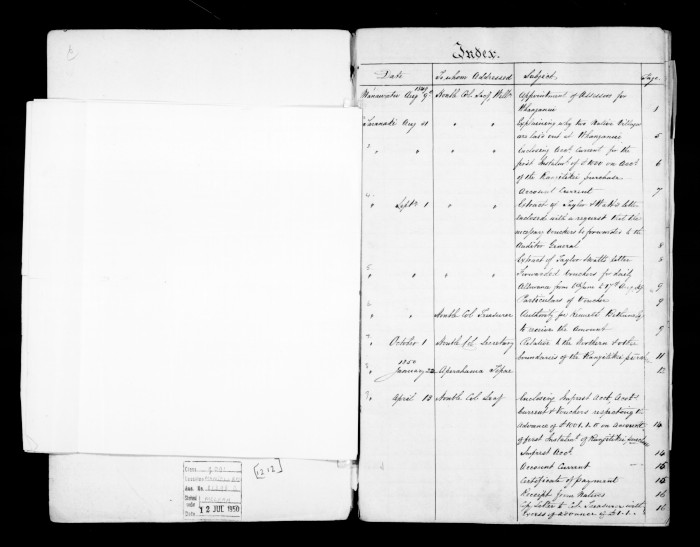 Index.
Date To whom Addressed Subject. Page
1849
Manawatu Aug 9th Honble Col. Secy Welln Appointment of Assessors for
Whanganui 1
Taranaki Aug 21 " " Explaining why two Native Villages
are laid out at Whanganui 5
" " " " Enclosing Acct Current for the
first Instalmt of £1000 on Acct 6
of the Rangitikei purchase
Account Current 7
" Septr 1 " " Extract of Taylor & Watts letter
enclosed with a request that the
necessary vouchers be furnished to the
Auditor General 8
Extract of Taylor & Watts letter 8
" " " " Forwarded Vouchers for daily
Allowance from June to 17th Aug 9
Particulars of Voucher 9
" " Honble Col. Treasurer Authority for Kenneth Bethune Esq
to receive the Amount 9
" October 1 Honble Col. Secretary Relative to the Northern & other
boundaries of the Rangitikei purchase 11
1850
" January 22 Aperahama Tipae 12
" April 13 Honble Col. Secy Enclosing Imprest Acct Acct
Current & Vouchers respecting the
advance of on Account 14
of first Instalmt of Rangitikei purch
Imprest Acct 14
Account Current 15
Certificate of payment 15
Receipt from Natives 16
Letter to Col. Treasurer with 16
[212]
12 JUL 1950
Date